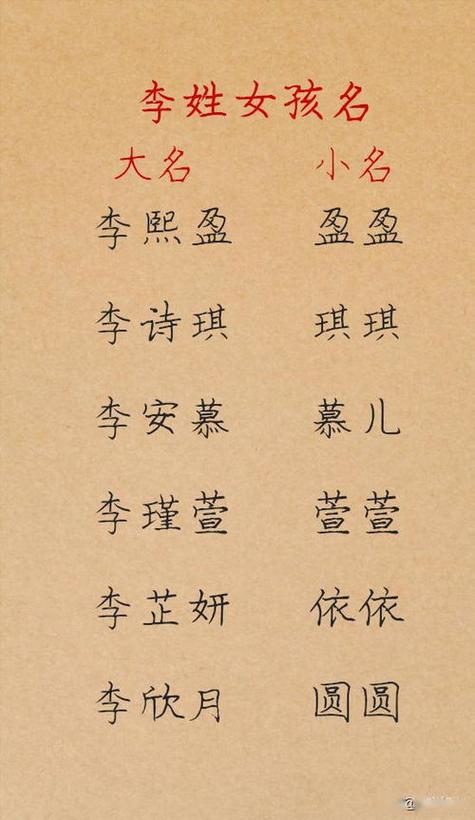 李姓女孩名
大名 小名
李熙盈 盈盈
李诗琪 琪琪
李安慕 慕儿
李瑾萱 萱萱
李芷妍 依依
李欣月 圆圆
@